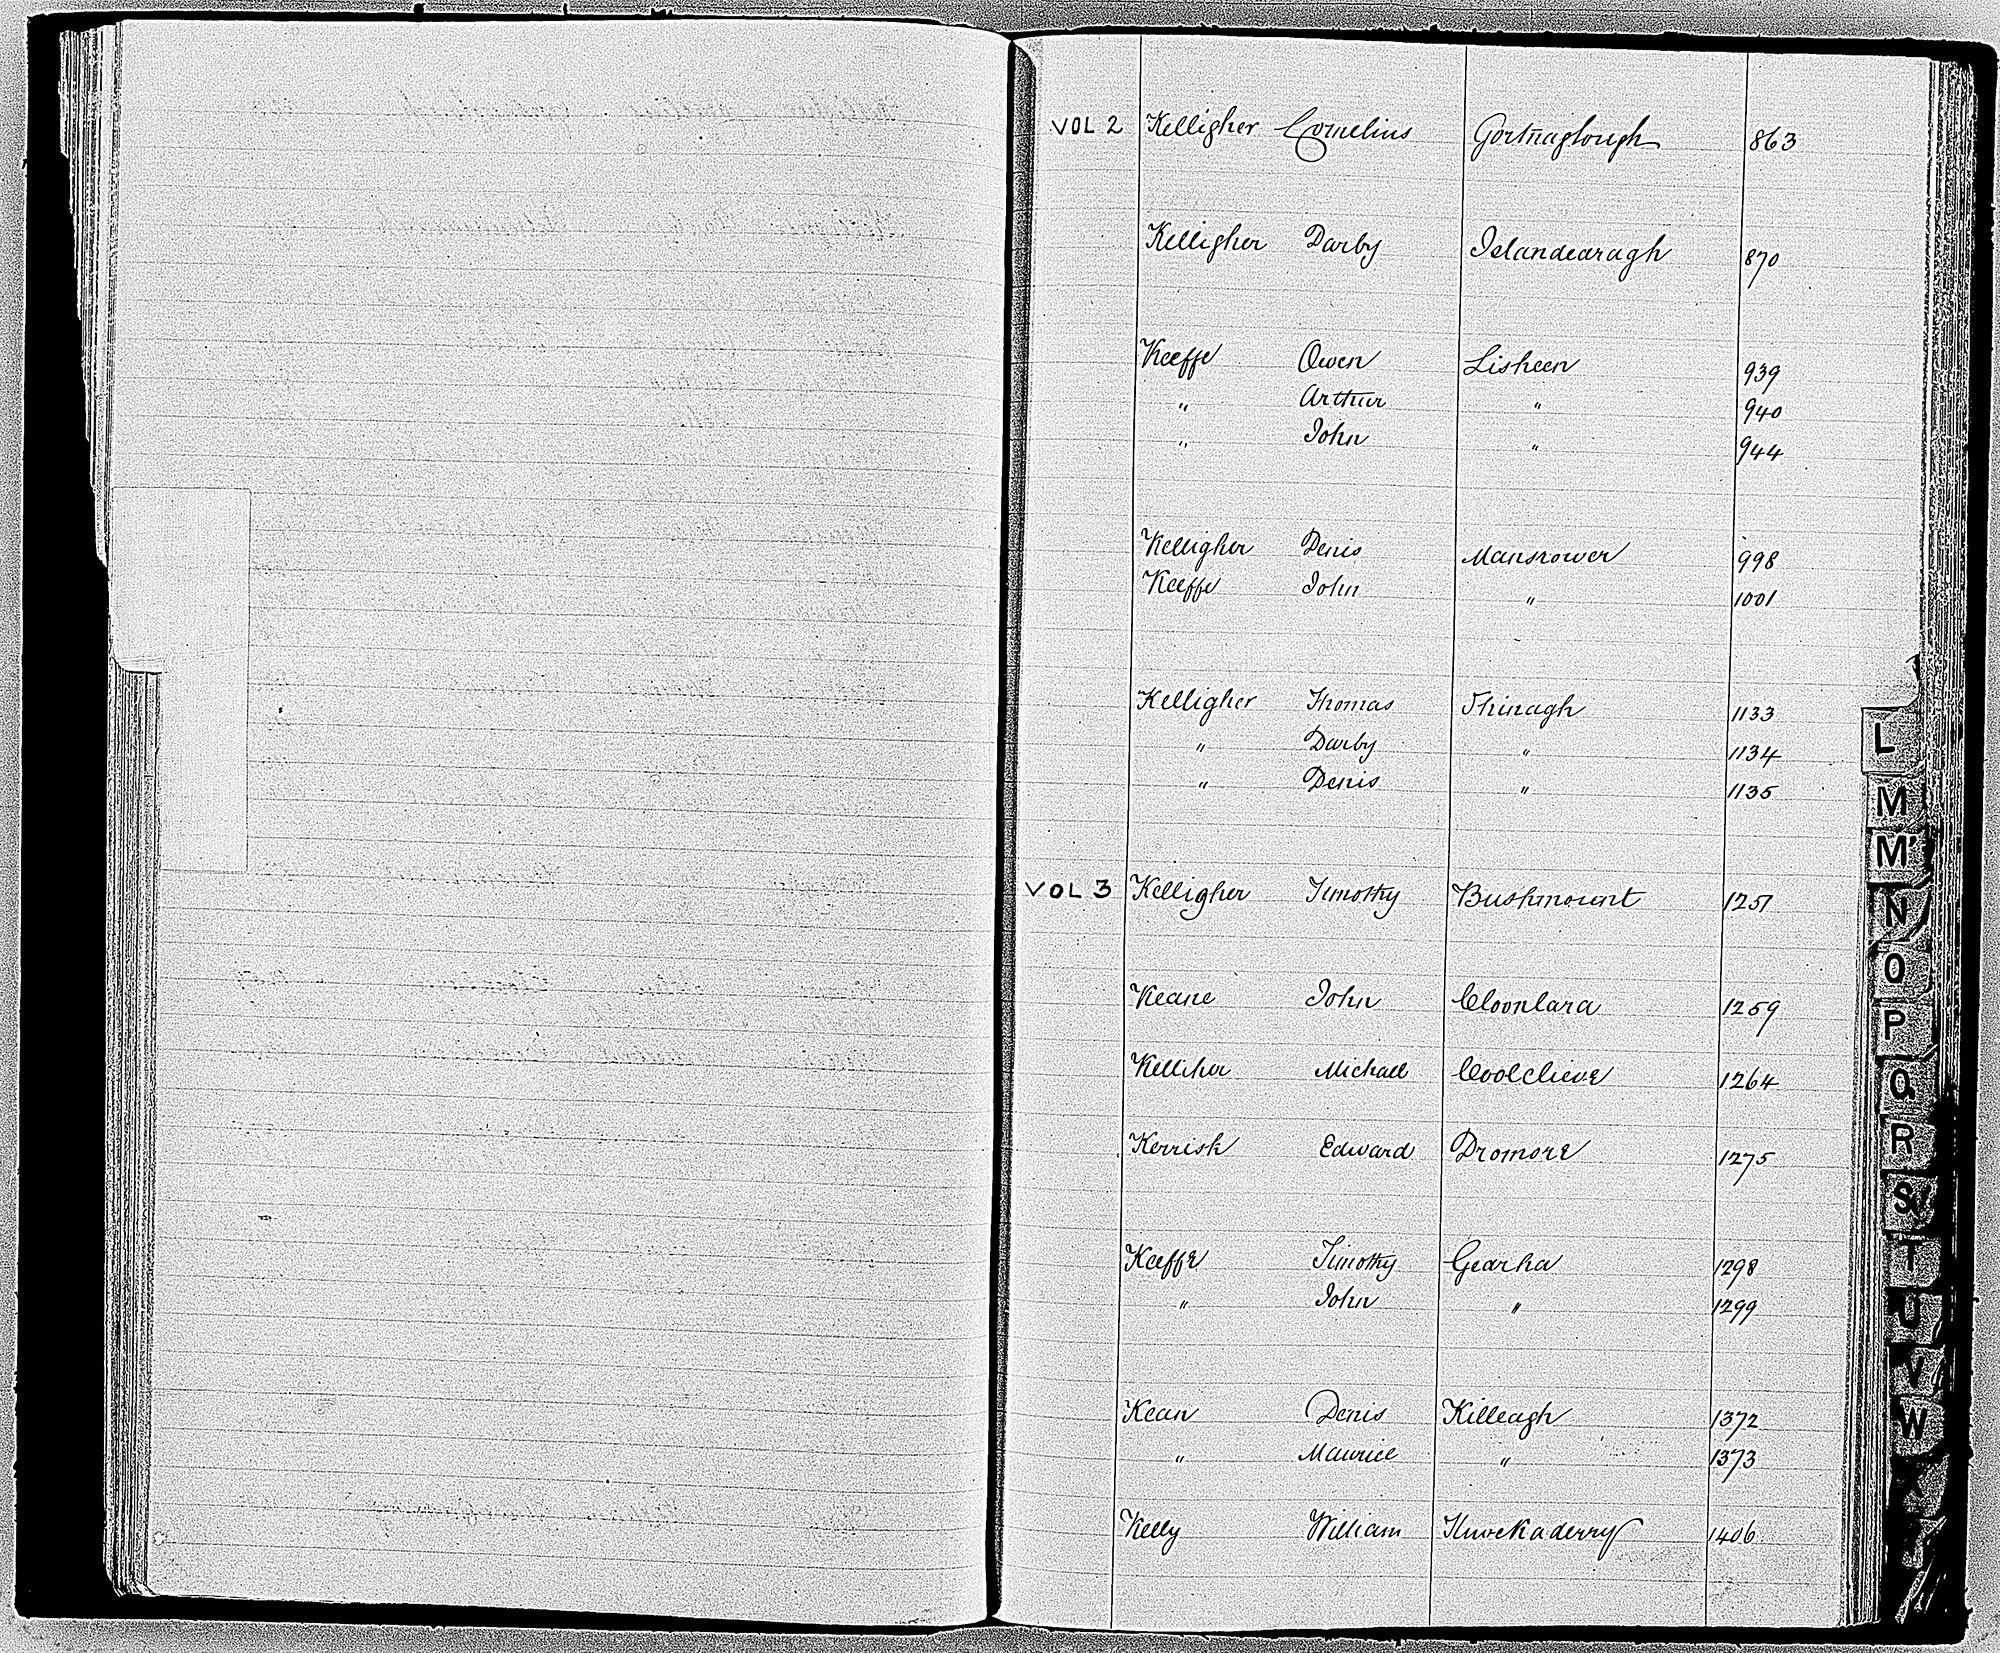 VOL 2 Kelligher Cornelius Gortnaglough 863
Kelligher Darby Islandearagh 870
Keeffe Owen Lisheen 939
" Arthur " 940
" John " 944
Kelligher Denis Mansrower 998
Keeffe John " 1001
Kelligher Thomas Shinagh 1133
" Darby " 1134
" Denis " 1135
VOL 3 Kelligher Timothy Bushmount 1251
Keane John Cloonlara 1259
Kelliher Michael Coolclieve 1264
Kerrisk Edward Dromore 1275
Keeffe Timothy Gearha 1298
" John " 1299
Kean Denis Killeagh 1372
" Maurice " 1373
Kelly William Knockaderry 1406
L
M
Mc
N
O
P
Q
R
S
T
U
V
W